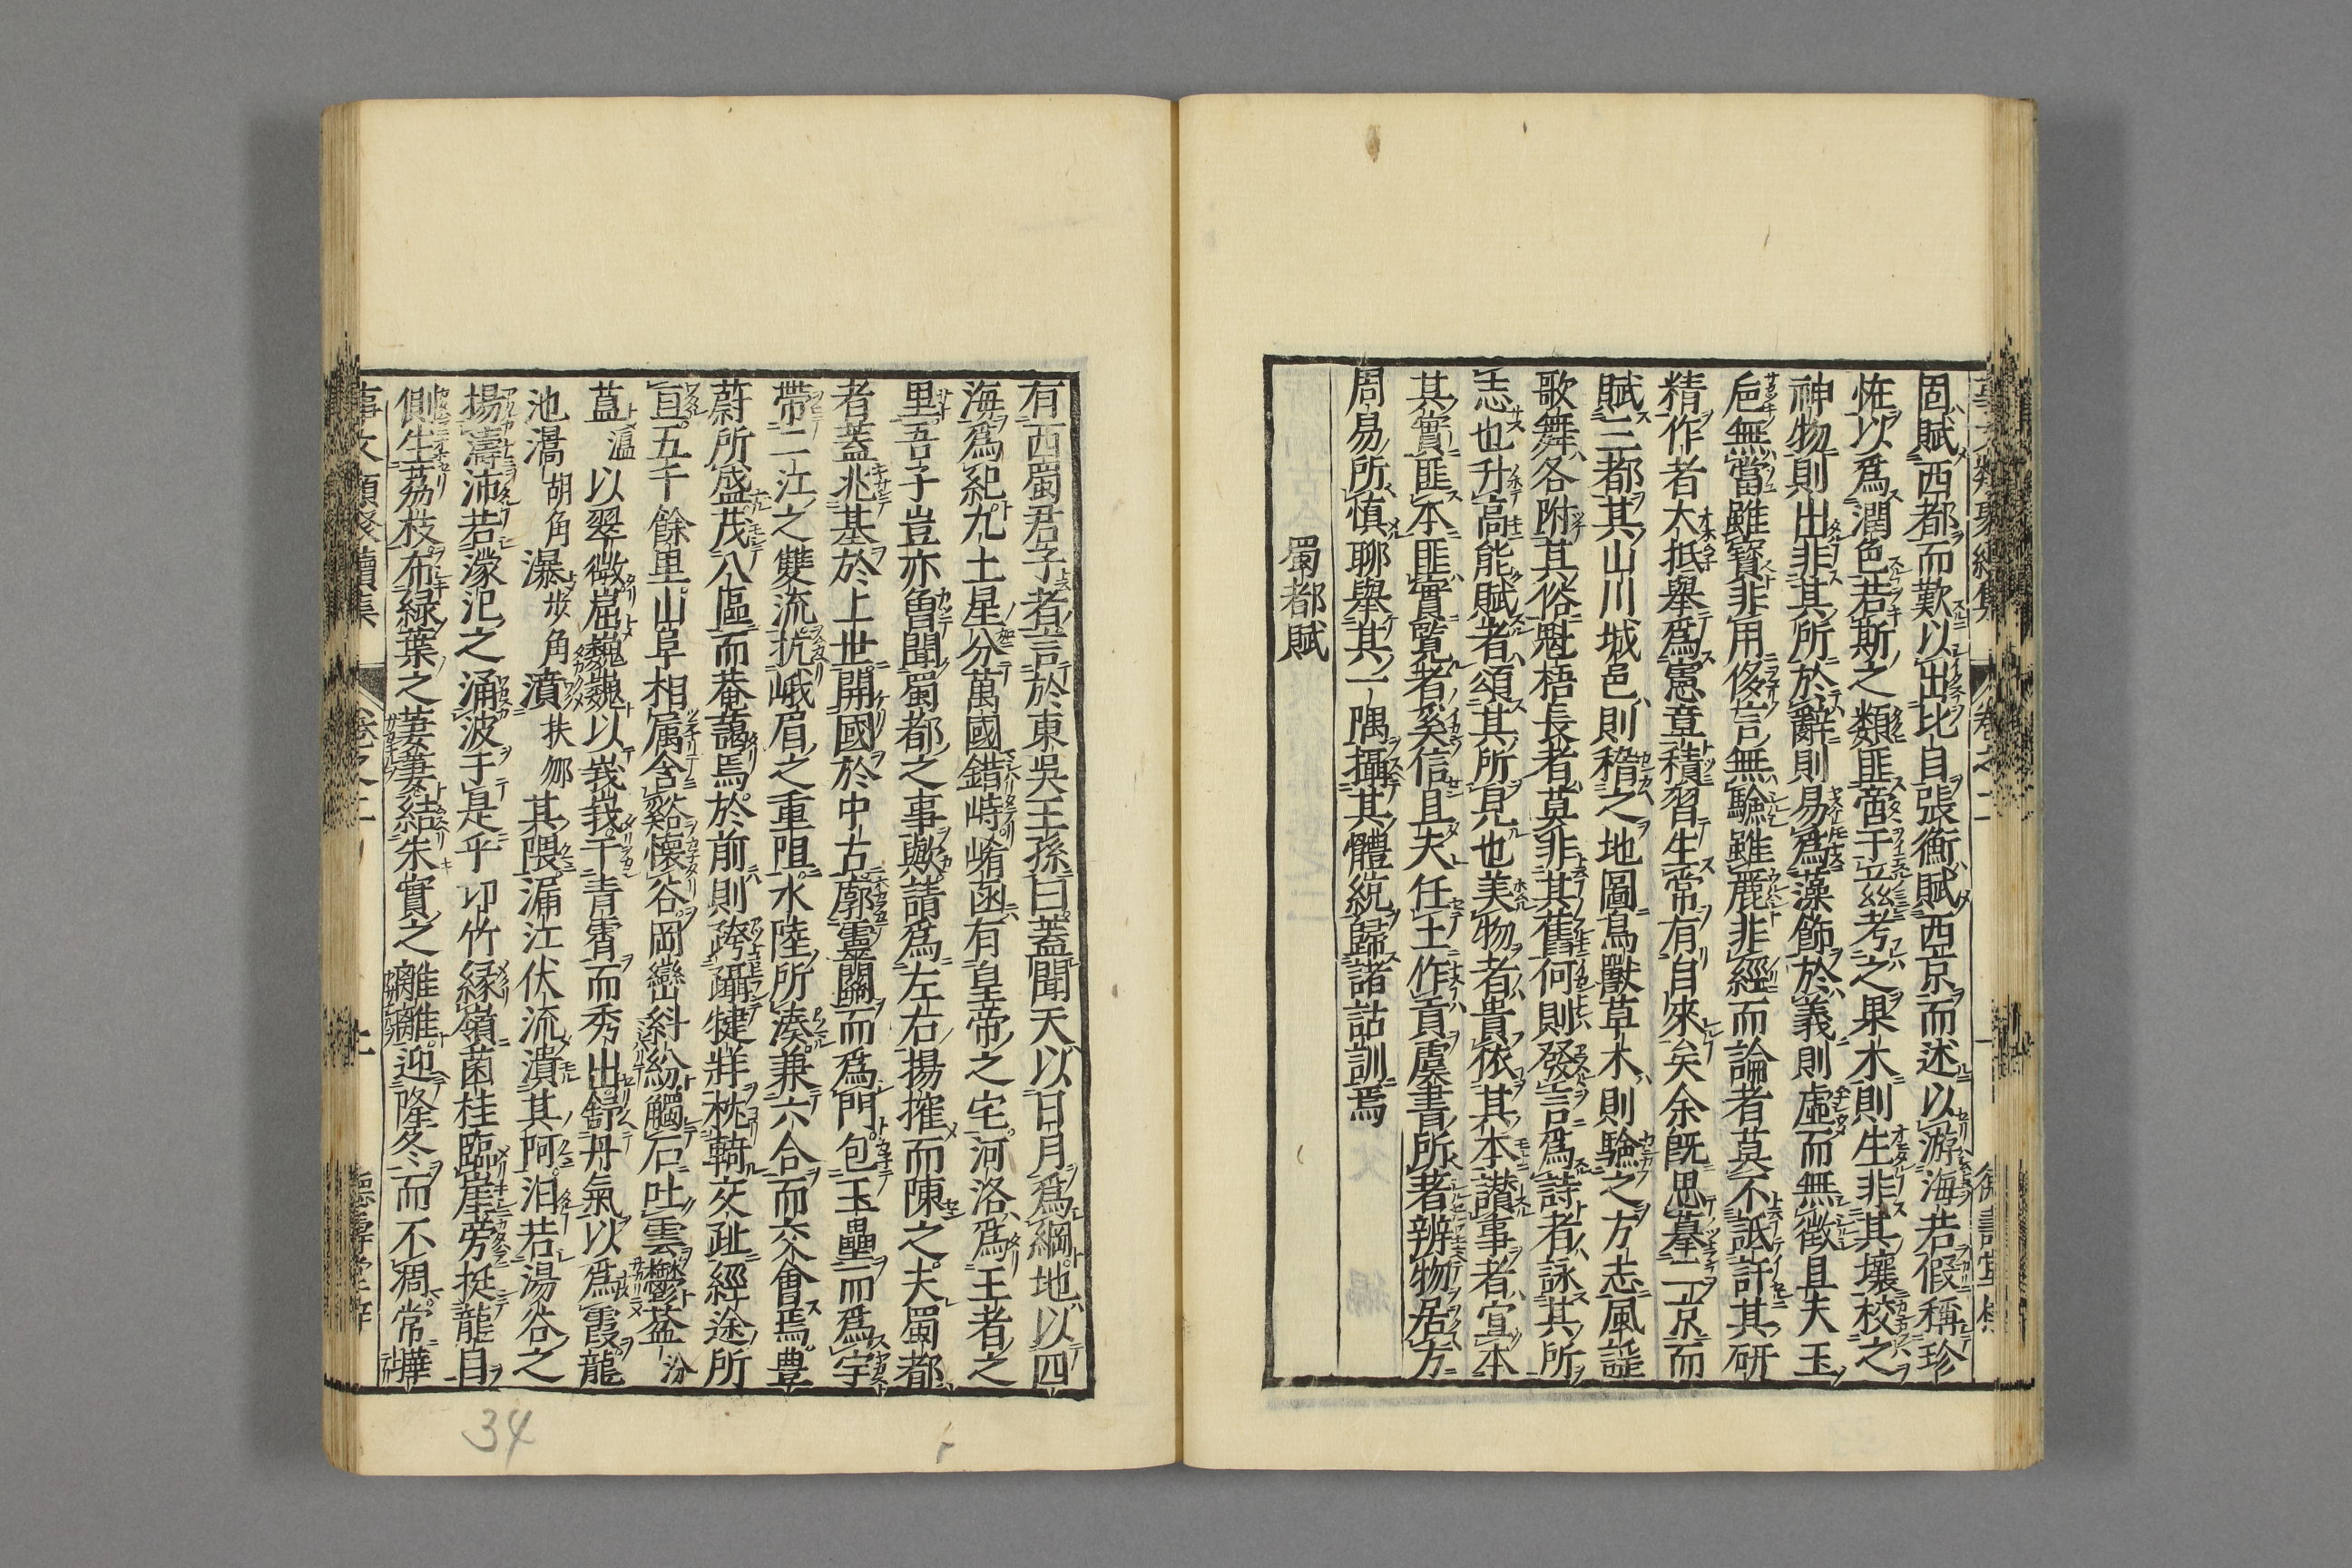 固賦西都而歎以出比目張衡賦西京而述以游海若假稱珍
恠以爲潤色若斯之類匪啻于玆考之果木則生非其壤校之
神物則出非其所於辭則易爲藻飾於義則虛而無徵且夫玉
巵無當雖寶非用侈言無驗雖麗非經而論者莫不詆訐其研
精作者大抵舉爲憲章積習生常有自來矣余旣思摹二京而
賦三都其山川城邑則稽之地圖鳥獸草木則驗之方志風謠
歌舞各附其俗魁梧長者莫非其舊何則發言爲詩者詠其所
志也升高能賦者頌其所見也美物者貴依其本讃事者宜本
其實匪本匪實覽者奚信且夫任土作貢虞書所著辨物居方
周易所慎聊舉其一隅攝其體統歸諸詁訓焉
蜀都賦
有西蜀君子者言於東吳王孫曰蓋聞天以日月爲綱地以四
海爲紀九土星分萬國錯峙崤函有皇帝之宅河洛爲王者之
里吾子豈亦曾聞蜀都之事歟請爲左右揚搉而陳之夫蜀都
者蓋兆基於上世開國於中古廓靈關而爲門包玉壘而爲宇
帶二江之雙流抗峨眉之重阻水陸所湊兼六合而交會焉豊
蔚所盛茂八區而菴藹焉於前則跨躡犍牂枕輢交趾經途所
亘五千餘里山阜相属含谿懷谷岡巒糾紛觸石吐雲鬱葢汾
葐溫以翠微崛巍巍以峩峩干青霄而秀出舒丹氣以爲霞龍
池㵧胡角瀑步角濆扶刎其隈漏江伏流潰其阿汨若湯谷之
揚濤沛若濛汜之涌波于是乎卭竹緣嶺菌桂臨崖旁挺龍目
側生荔枝布緑葉之萋萋結朱實之離離迎隆冬而不凋常曄
事文類聚續集 卷之二 上 德壽堂梓
34